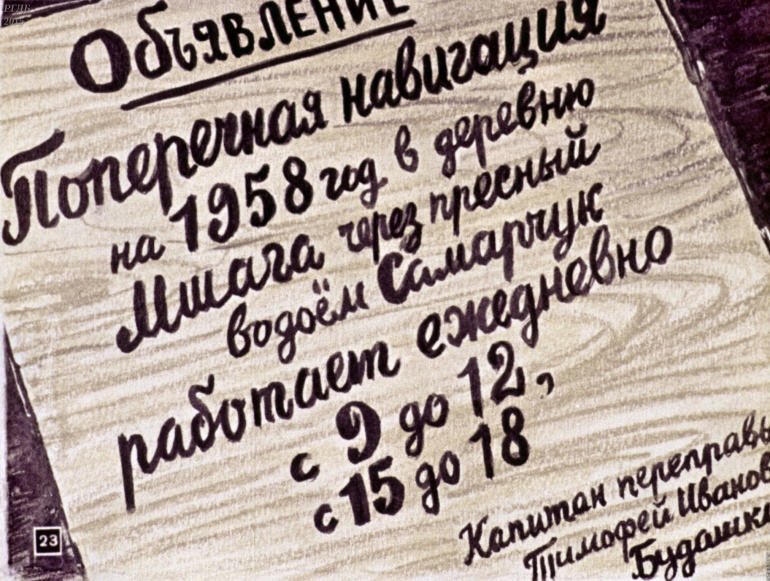 РГДБ
2015
Объявление
Поперечная навигация
на 1958 год в деревню
Мшага через пресный
водоём Самарчук
работает ежедневно
с 9 до 12,
с 15 до 18
Капитан переправы
Тимофей Иванов
Будашк
23